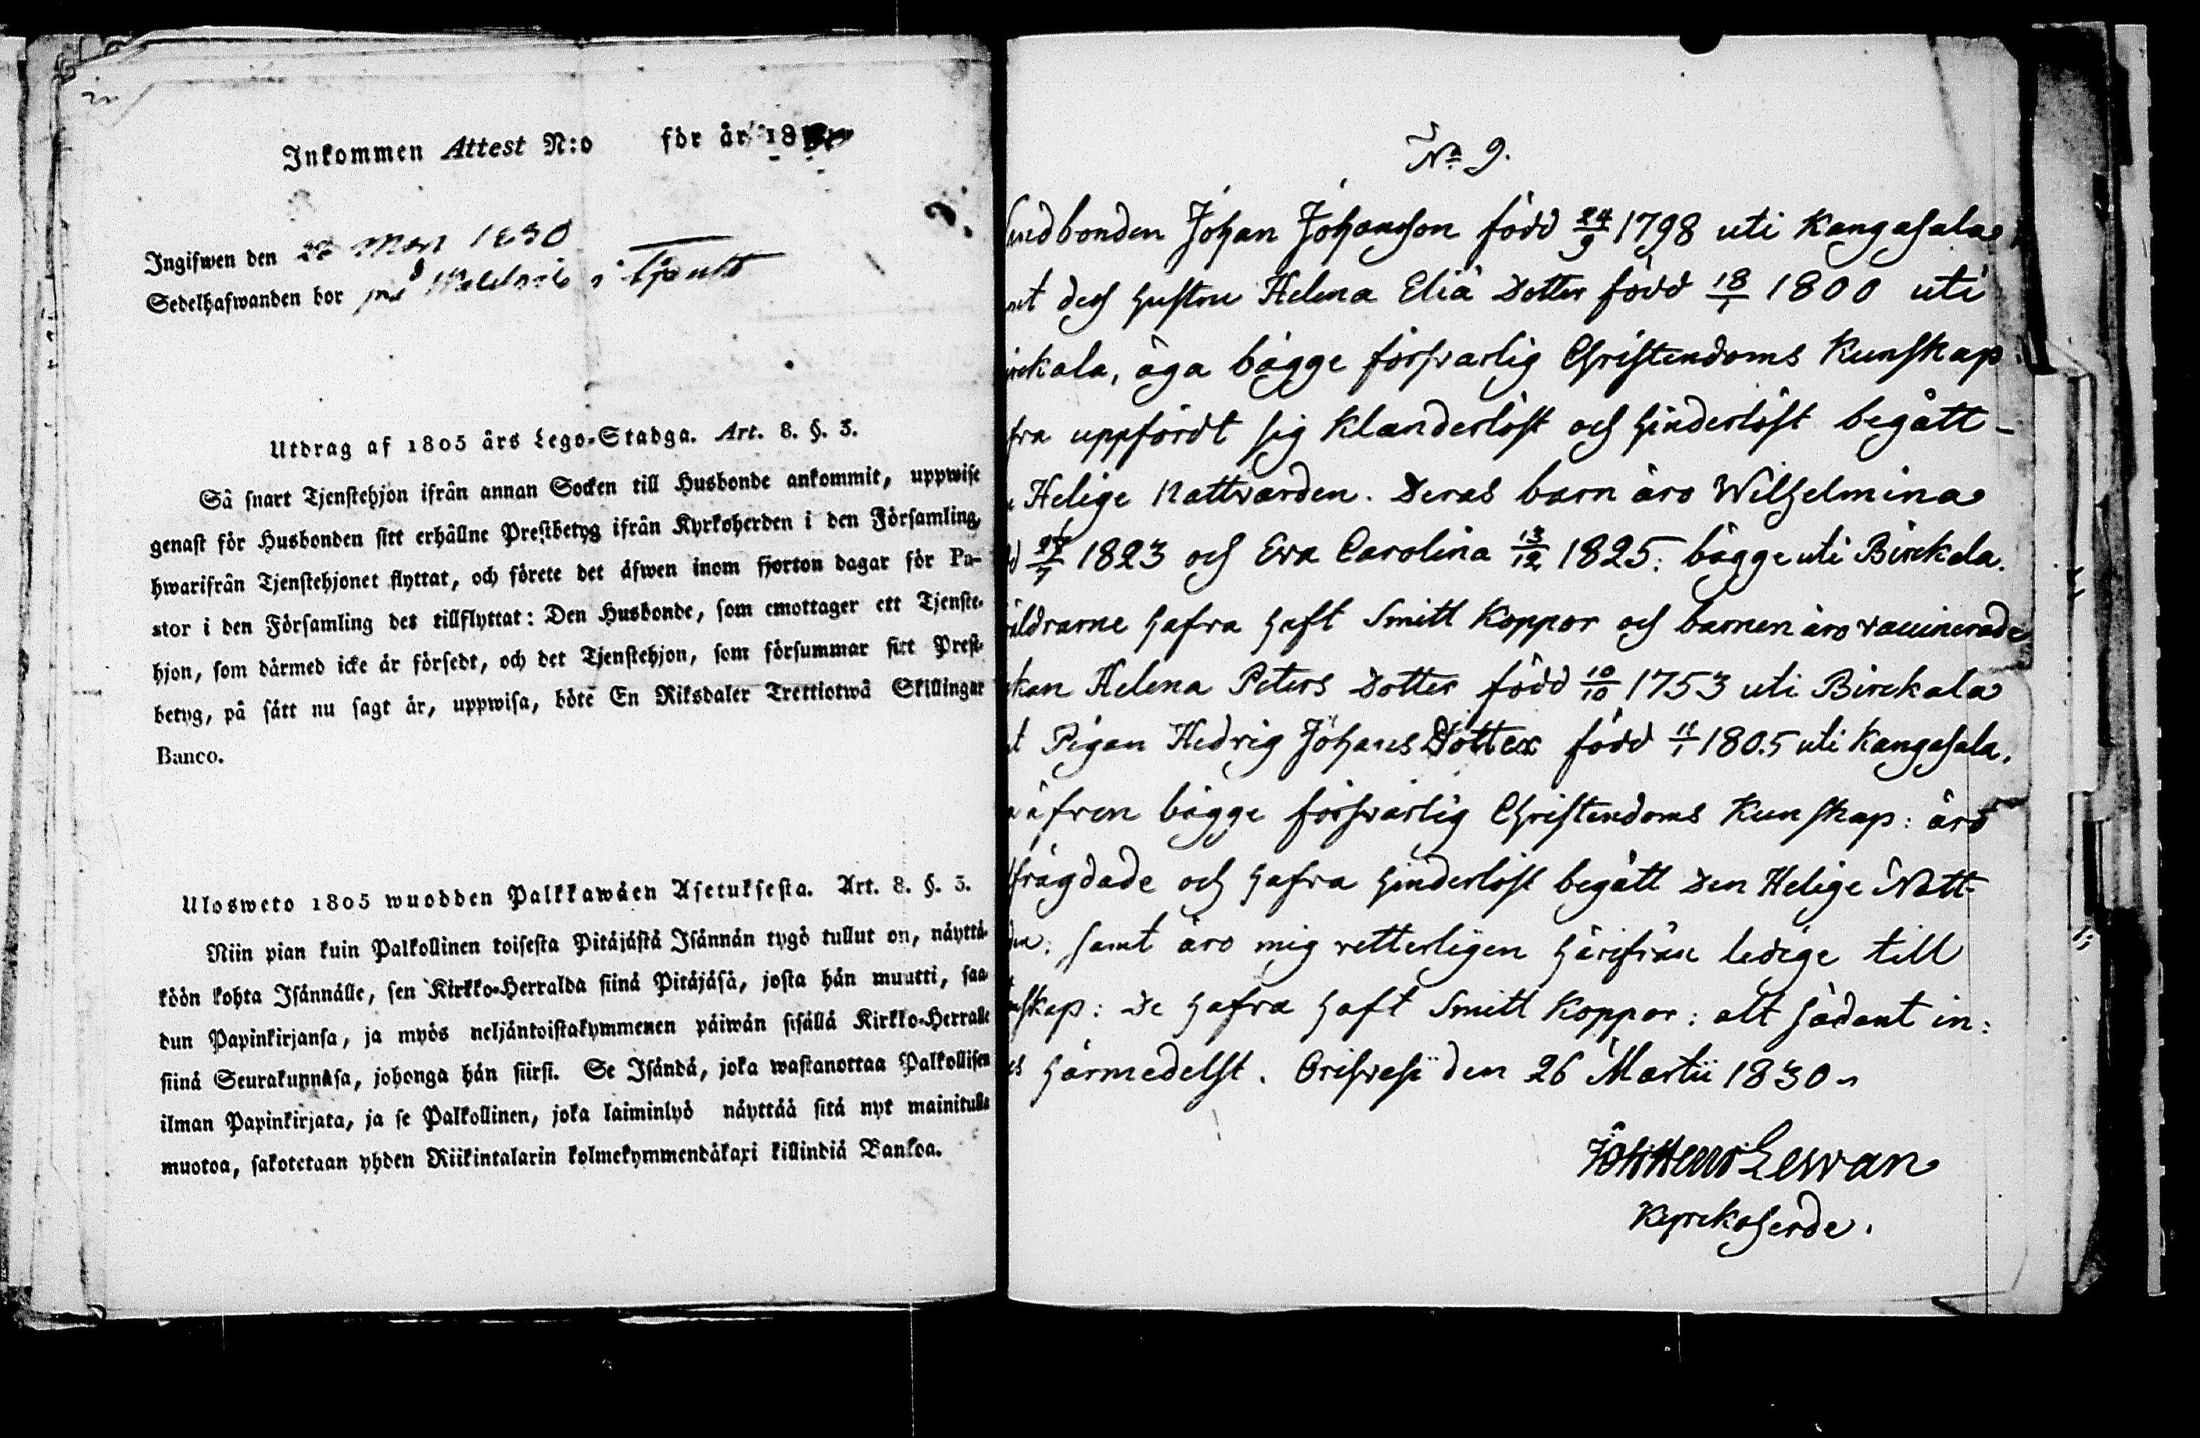 Inkommen Attest N:o för år 18
Ingifwen den 22 Mart 1830
Sedelhafwanden bor på i
Utdrag af 1805 års Lego-Stadga. Art. 8. §. 3.
Så snart Tjenstehjon ifrån annan Socken till Husbonde ankommit, uppwise
genast för Husbonden sitt erhållne Prestbetyg ifrån Kyrkoherden i den Församling,
hwarifrån Tjenstehjonet flyttat, och förete det äfwen inom fjorton dagar för Pa-
stor i den Församling det tillflyttat: Den Husbonde, som emottager ett Tjenste-
hjon, som därmed icke är försedt, och det Tjenstehjon, som försummar sitt Prest-
betyg, på sätt nu sagt är, uppwisa, böte En Riksdaler Trettiotwå Skillingar
Banco.
Ulosweto 1805 wuodden Palkkawäen Asetuksesta. Art. 8. §. 3.
Niin pian kuin Palkollinen toisesta Pitäjästä Isännän tygö tullut on, näyttä-
köön kohta Isännälle, sen Kirkko-Herralda siinä Pitäjäsä, josta hän muutti, saa-
dun Papinkirjansa, ja myös neljäntoistakymmenen päiwän sisällä Kirkko-Herralle
siinä Seurakunnasa, johonga hän siirsi. Se Isändä, joka wastanottaa Palkollisen
ilman Papinkirjata, ja se Palkollinen, joka laiminlyö näyttää sitä nyt mainitulla
muotoa, sakotetaan yhden Riikintalarin kolmekymmendäkaxi killindiä Bankoa.
No 9.
ndbonden Johan Johansson född 24/9 1798 uti Kangasala
mt dess Hustru Helena Eliä Dotter född 18/1 1800 uti
irckala, äga bägge försvarlig Christendoms Kunskap
fva uppfördt sig Klanderlöst och hinderlöst begått
Helige Nattvarden. Deras barn äro Wilhelmina
1823 och Eva Carolina 13/12 1825: bägge uti Birckala.
äldrarne hafva haft Smitt Koppor och barnen äro vaccinerade
kan Helena Peters Dotter född 10/10 1753 uti Birckala
t Pigan Hedvig Johans Dotter född 11/1 1805 uti Kangasala,
äfven bägge försvarlig Christendoms Kunskap: äro
frägdade och hafva hinderlöst begått Den Helige Natt-
den: samt äro mig vetterligen härifrån ledige till
skap: De hafva haft Smitt Koppor: allt sådant in:
es härmedelst. Orisvesi den 26 Martii 1830
Joh Henr Lewan
Kyrckoherde.